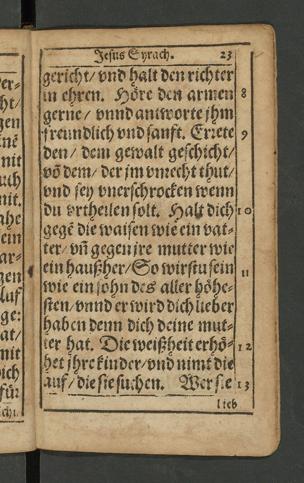 Jesus Syrach. 23
gericht/ vnd halt den richter
in ehren. Höre den armen 8
gerne/ vnnd antworte jhm
freundlich vnd sanfft. Errete 9
den/ dem gewalt geschicht/
võ dem/ der jm vnrecht thut/
vnd sey vnerschrocken wenn
du vrtheilen solt. Halt dich 10
gegẽ die waisen wie ein vat-
ter/ vñ gegen jre mutter wie
ein haußher/ So wirstu sein 11
wie ein sohn des aller höhe-
sten/ vnnd er wird dich lieber
haben denn dich deine mut-
ter hat. Die weißheit erhö- 12
het jhre kinder/ vnd nimt die
auf/ die sie suchen. Wer sie 13
lieb